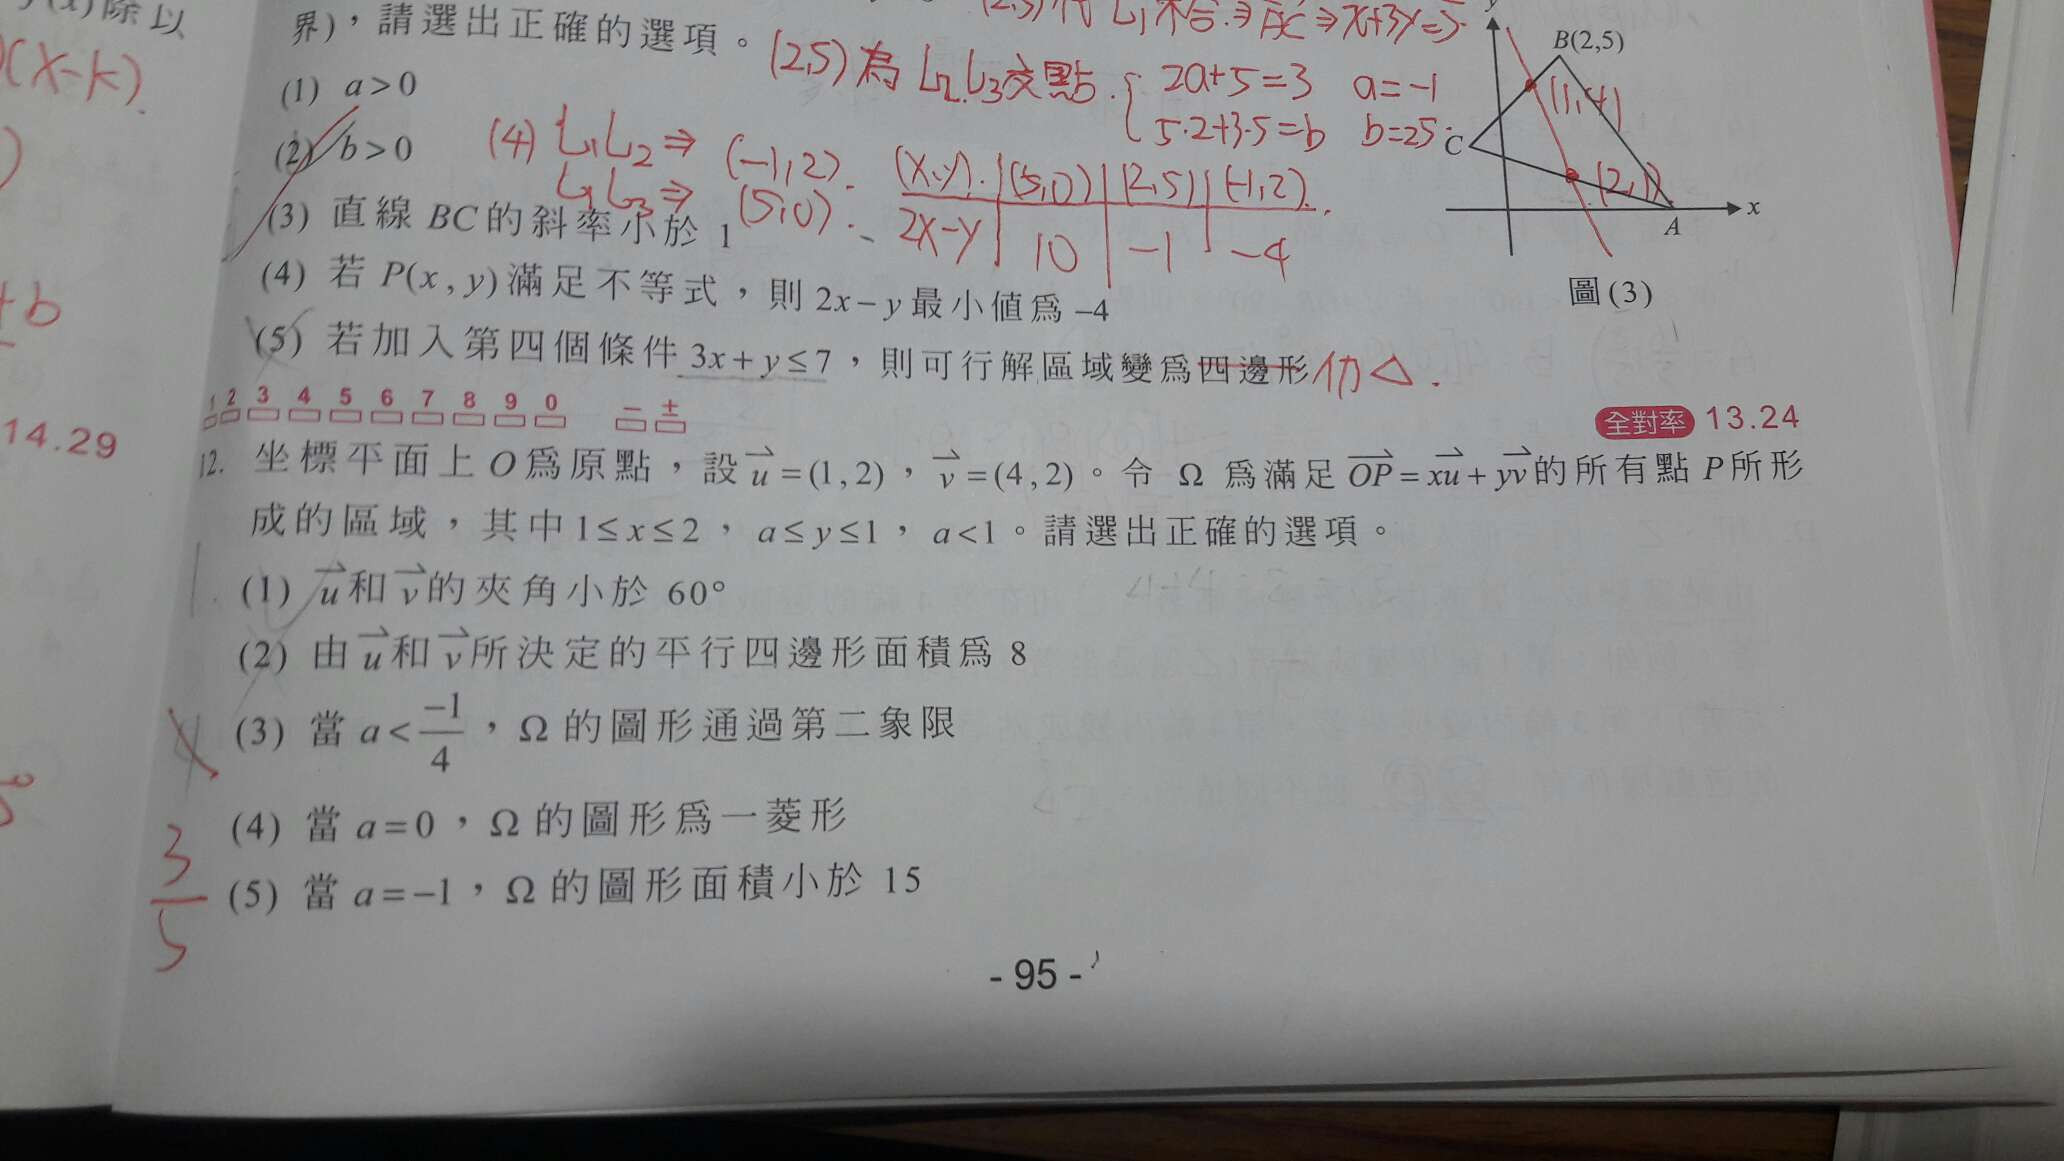 除以
(x-k)
+b
14.29
界)，請選出正確的選項。
(1) a>0
(2) b>0
(3) 直線BC的斜率小於 1
(4) 若 P(x,y)滿足不等式，則 2x-y最小值爲-4
(5) 若加入第四個條件 3x+y≤7，則可行解區域變爲四邊形 仍△.
(2,5)代 L₁不合⇒
⇒x+3y=5
(2,5)為 L₂.L₃交點.
2a+5=3 a=-1
5·2+3·5=b b=25
(4) L₁L₂⇒ (-1,2).
L₁L₃⇒ (5,0).
(x,y). (5,0) (2,5) (-1,2).
2x-y 10 -1 -4
y
B(2,5)
(1,4)
C
(2,1)
A
x
圖(3)
1 2 3 4 5 6 7 8 9 0 － ±
全對率 13.24
12. 坐標平面上O爲原點，設u=(1,2)，v=(4,2)。令 Ω 爲滿足OP=xu+yv的所有點P所形
成的區域，其中1≤x≤2，a≤y≤1，a<1。請選出正確的選項。
(1) u和v的夾角小於 60°
(2) 由u和v所決定的平行四邊形面積爲 8
(3) 當 a<-1/4，Ω 的圖形通過第二象限
(4) 當 a=0，Ω 的圖形爲一菱形
(5) 當 a=-1，Ω 的圖形面積小於 15
3/5
- 95 -